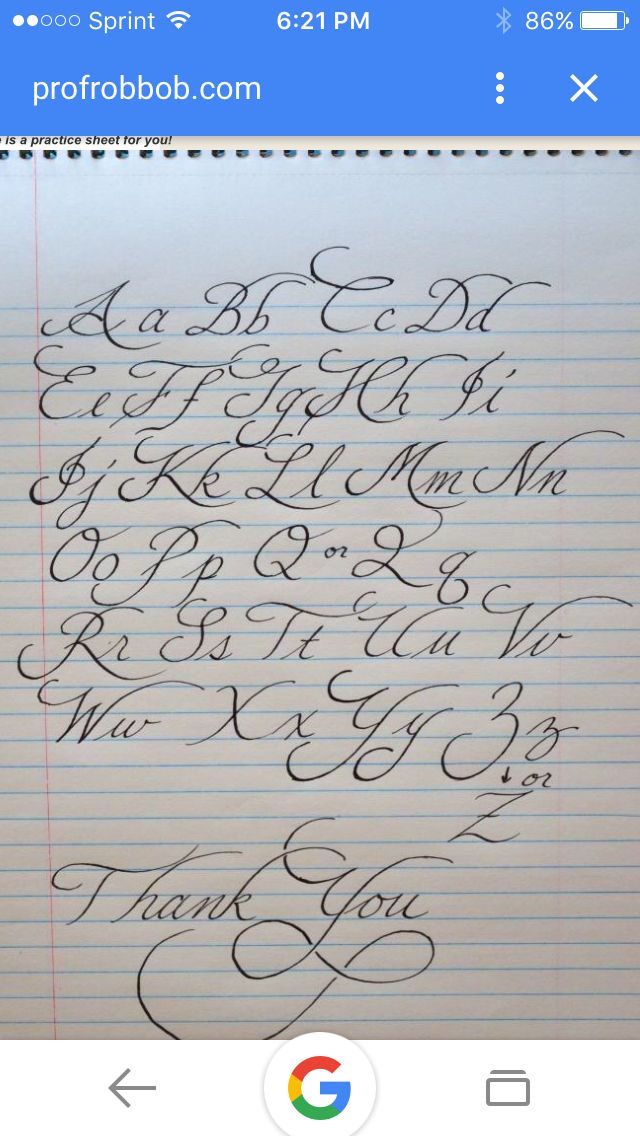 Sprint 6:21 PM 86%
profrobbob.com
is a practice sheet for you!
Aa Bb Cc Dd
Ee Ff Gg Hh Ii
Jj Kk Ll Mm Nn
Oo Pp Q or Q q
Rr Ss Tt Uu Vv
Ww Xx Yy Zz
↓ or
Z
Thank You